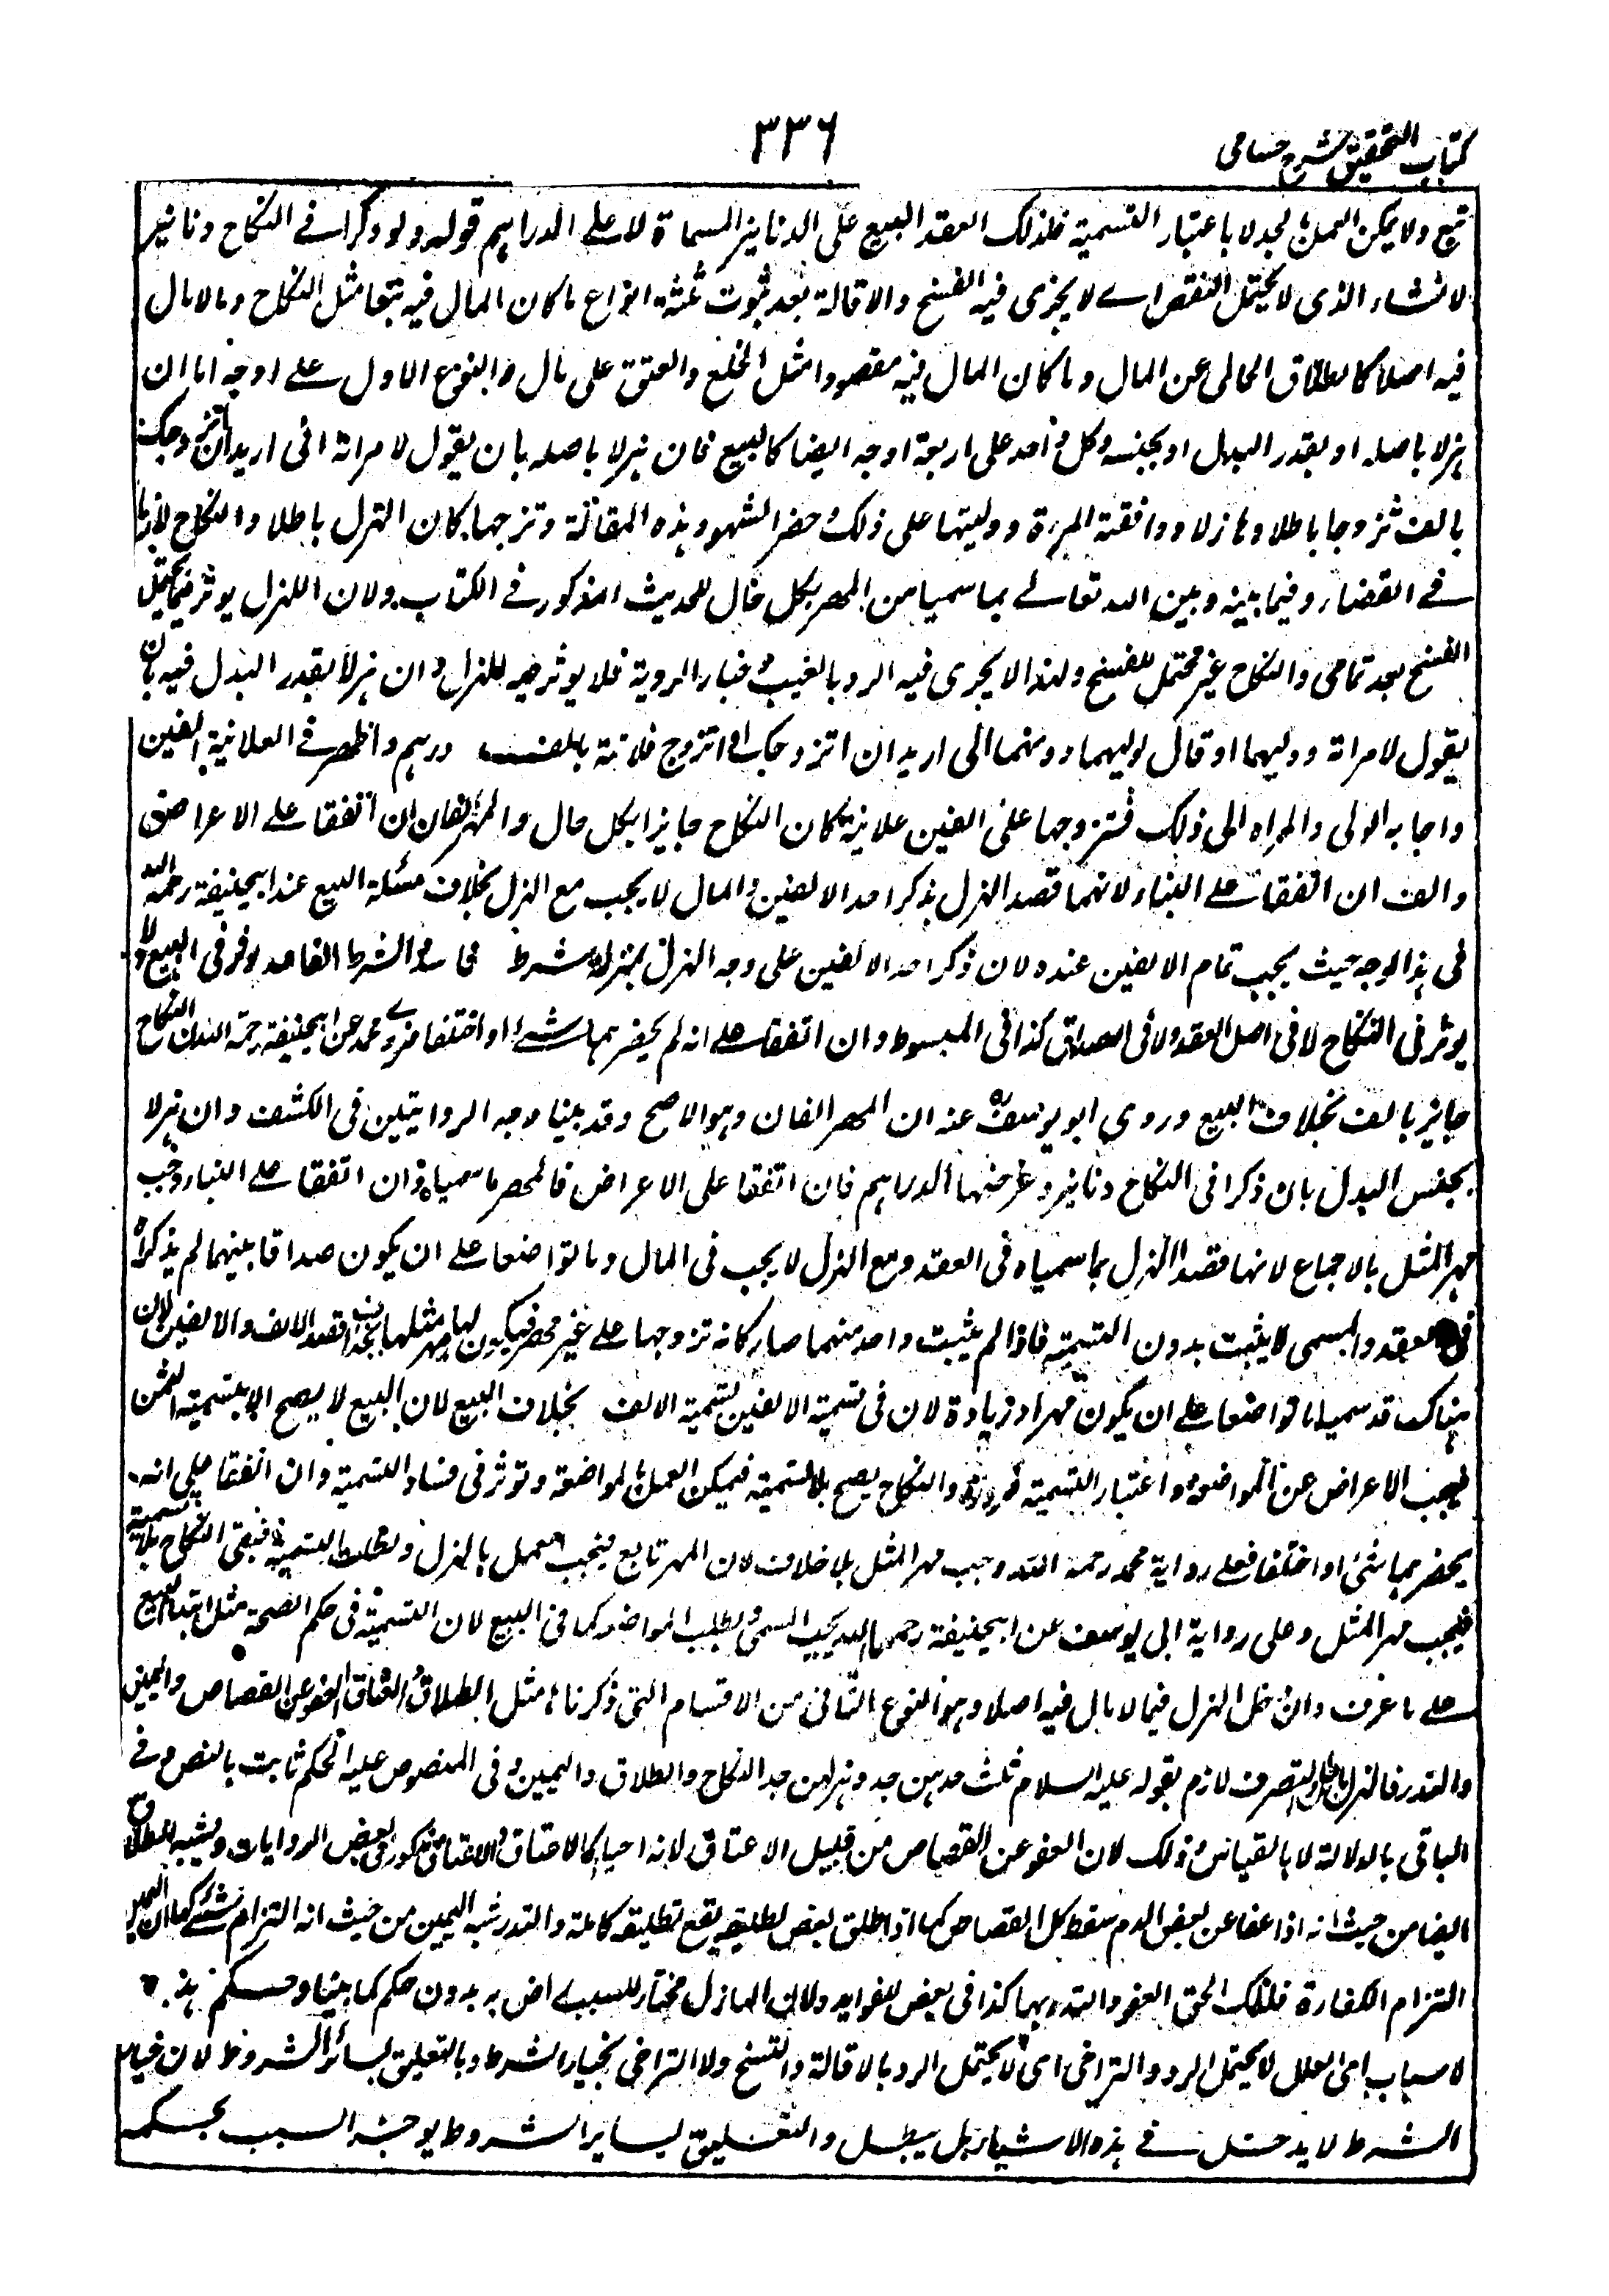 كتاب التحقيق شرح حسامی
٣٣٦
تبع ولا يمكن العمل بالجد لا باعتبار التسمية فلذلك انعقد البيع على الدنانير المسماة لا على الدراهم قوله ولو ذكرا فے النكاح دنانير
لانشاء الذى لا يحتمل النقض اے لا يجزى فيه الفسخ والاقالة بعد ثبوت ثلثة انواع ما كان المال فيه تبعا مثل النكاح وما لا مال
فيه اصلا كالطلاق الخالى عن المال وما كان المال فيه مقصودا مثل الخلع والعتق على مال والنوع الاول علے اوجه اما ان
هزلا باصله او بقدر البدل او بجنسه وكل واحد على اربعة اوجه ايضا كالبيع فان هزلا باصله بان يقول لامراة انى اريد ان اتزوجك
بالف تزوجا باطلا وهازلا ووافقته المرءة ووليتها على ذلك وحضر الشهود هذه المقالة وتزوجها كان الهزل باطلا والنكاح لازما
فے القضاء وفيما بينه وبين الله تعالے بما سميا من المهر بكل حال للحديث المذكور فے الكتاب ولان الهزل يوثر فيما يحتمل
الفسخ بعد تمامى والنكاح غير محتمل للفسخ ولهذا لا يجرى فيه الرد بالعيب وخيار الروية فلا يوثر فيه الهزل وان هزلا بقدر البدل فيه بان
يقول لامراة ووليها او قال لوليها دونها انى اريد ان اتزوجك او اتزوج فلانة بالف درهم واظهر فے العلانية الفين
واجابه الولى والمراه الى ذلك فتزوجها على الفين علانية كان النكاح جايزا بكل حال والمهر الفان ان اتفقا علے الاعراض
والف ان اتفقا علے البناء لانهما قصدا الهزل بذكر احد الالفين والمال لا يجب مع الهزل بخلاف مسئلة البيع عند ابيحنيفة رحمه الله
فى هذا الوجه حيث يجب تمام الالفين عنده لان ذكر احد الالفين على وجه الهزل بمنزلة شرط فاسد والشرط الفاسد يوثر فى البيع ولا
يوثر فى النكاح لا فى اصل العقد ولا فى الصداق كذا فى المبسوط وان اتفقا علے انه لم يحضرهما شے او اختلفا فروے محمد عن ابيحنيفة رحمة الله ان النكاح
جايز بالف بخلاف البيع وروي ابو يوسف عنه ان المهر الفان وهو الاصح وقد بينا وجه الروايتين فى الكشف وان هزلا
بجنس البدل بان ذكرا فى النكاح دنانير وغرضهما الدراهم فان اتفقا على الاعراض فالمهر ما سمياه وان اتفقا علے البناء وجب
مهر المثل بالاجماع لانهما قصدا الهزل بما سمياه فى العقد ومع الهزل لا يجب فى المال وما تواضعا علے ان يكون صداقا بينهما لم يذكراه
فى العقد والمسمى لا يثبت بدون التسمية فاذا لم يثبت واحد منهما صار كانه تزوجها علے غير مهر فيكون لها مهر مثلها بخلاف قصد الالف والالفين لان
هناك قد سميا ما تواضعا علے ان يكون مهرا وزيادة لان فى تسمية الالفين تسمية الالف بخلاف البيع لان البيع لا يصح الا بتسمية الثمن
فيجب الاعراض عن المواضعة واعتبار التسمية ضرورة والنكاح يصح بلا تسمية فيمكن العمل بالمواضعة وتوثر فى فساد التسمية وان اتفقا على انه
يحضرهما شئ او اختلفا فعلے رواية محمد رحمه الله وجب مهر المثل بلا خلاف لان المهر تابع فيجب العمل بالهزل وبطلت التسمية فبقى النكاح بلا تسمية
فيجب مهر المثل وعلى رواية ابى يوسف عن ابيحنيفة رحمهما الله يجب المسمى وبطلت المواضعة كما فى البيع لان التسمية فى حكم الصحة مثل ابتداء البيع
علے ما عرف وان دخل الهزل فيما لا مال فيه اصلا وهو النوع الثانى من الاقسام التى ذكرنا مثل الطلاق والعتاق والعفو عن القصاص واليمين
والنذر فالهزل باطل والتصرف لازم بقوله عليه السلام ثلث جدهن جد وهزلهن جد النكاح والطلاق واليمين وفى المنصوص عليه الحكم ثابت بالنص وفے
الباقى بالدلالة لا بالقياس وذلك لان العفو عن القصاص من قبيل الاعتاق لانه احياء كالاعتاق والاعتاق مذكور فى بعض الروايات ويشبه الطلاق
ايضا من حيث انه اذا عفا عن بعض الدم سقط كل القصاص كما اذا طلق بعض تطليقة يقع تطليقة كاملة والنذر شبه اليمين من حيث انه التزام شئ كما ان اليمين
التزام الكفارة فلذلك الحق العفو والنذر بهما كذا فى بعض الفوايد ولان الهازل مختار للسبب راض به بدون حكم كما بينا وحكم هذه
لاسباب اى العلل لا يحتمل الرد والتراخى اى لا يحتمل الرد بالاقالة والفسخ ولا التراخى بخيار الشرط وبالتعليق بسائر الشروط لان خيار
الشرط لا يدخل فے هذه الاشياء بل يبطل والتعليق بساير الشروط يوخر السبب بحكمه